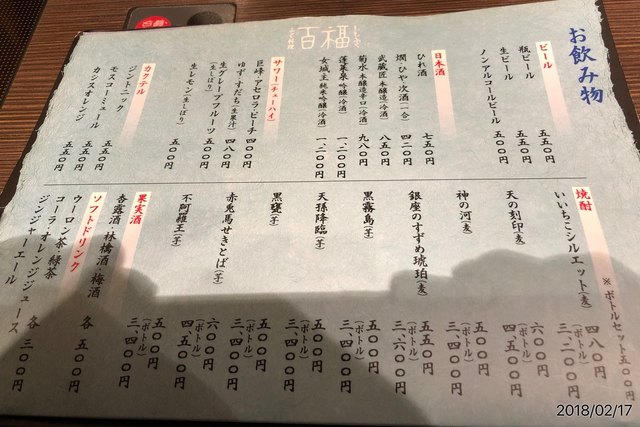 お飲み物
百福
ビール
瓶ビール 五五〇円
生ビール 五五〇円
ノンアルコールビール 五〇〇円
日本酒
ひれ酒 七五〇円
燗・ひや・次酒(一合) 四二〇円
武蔵匠 本醸造(冷酒) 八五〇円
菊水 本醸造辛口(冷酒) 九八〇円
蓬莱泉 吟醸(冷酒) 一、二〇〇円
女城主 純米吟醸(冷酒) 一、二〇〇円
サワー(チューハイ)
巨峰・アセロラ・ピーチ 四〇〇円
ゆず・すだち(生果汁) 四八〇円
生グレープフルーツ(生しぼり) 五〇〇円
生レモン(生しぼり) 五〇〇円
カクテル
ジントニック 五五〇円
モスコーミュール 五五〇円
カシスオレンジ 五五〇円
焼酎
※ボトルセット 五〇〇円
いいちこシルエット(麦) 四八〇円
(ボトル) 三、二〇〇円
天の刻印(麦) 六〇〇円
(ボトル) 四、五〇〇円
神の河(麦) 五〇〇円
(ボトル) 三、四〇〇円
銀座のすずめ琥珀(麦) 五五〇円
(ボトル) 三、六〇〇円
黒霧島(芋) 五〇〇円
(ボトル) 三、四〇〇円
天孫降臨(芋) 五〇〇円
(ボトル) 三、四〇〇円
黒甕(芋) 五〇〇円
(ボトル) 三、四〇〇円
赤兎馬せきとば(芋) 五〇〇円
(ボトル) 三、四〇〇円
不阿羅王(芋) 六〇〇円
(ボトル) 四、五〇〇円
果実酒
杏露酒・林檎酒・梅酒 五〇〇円
(ボトル) 三、四〇〇円
ソフトドリンク
ウーロン茶・緑茶
コーラ・オレンジジュース
ジンジャーエール
各 五〇〇円
各 三〇〇円
2018/02/17